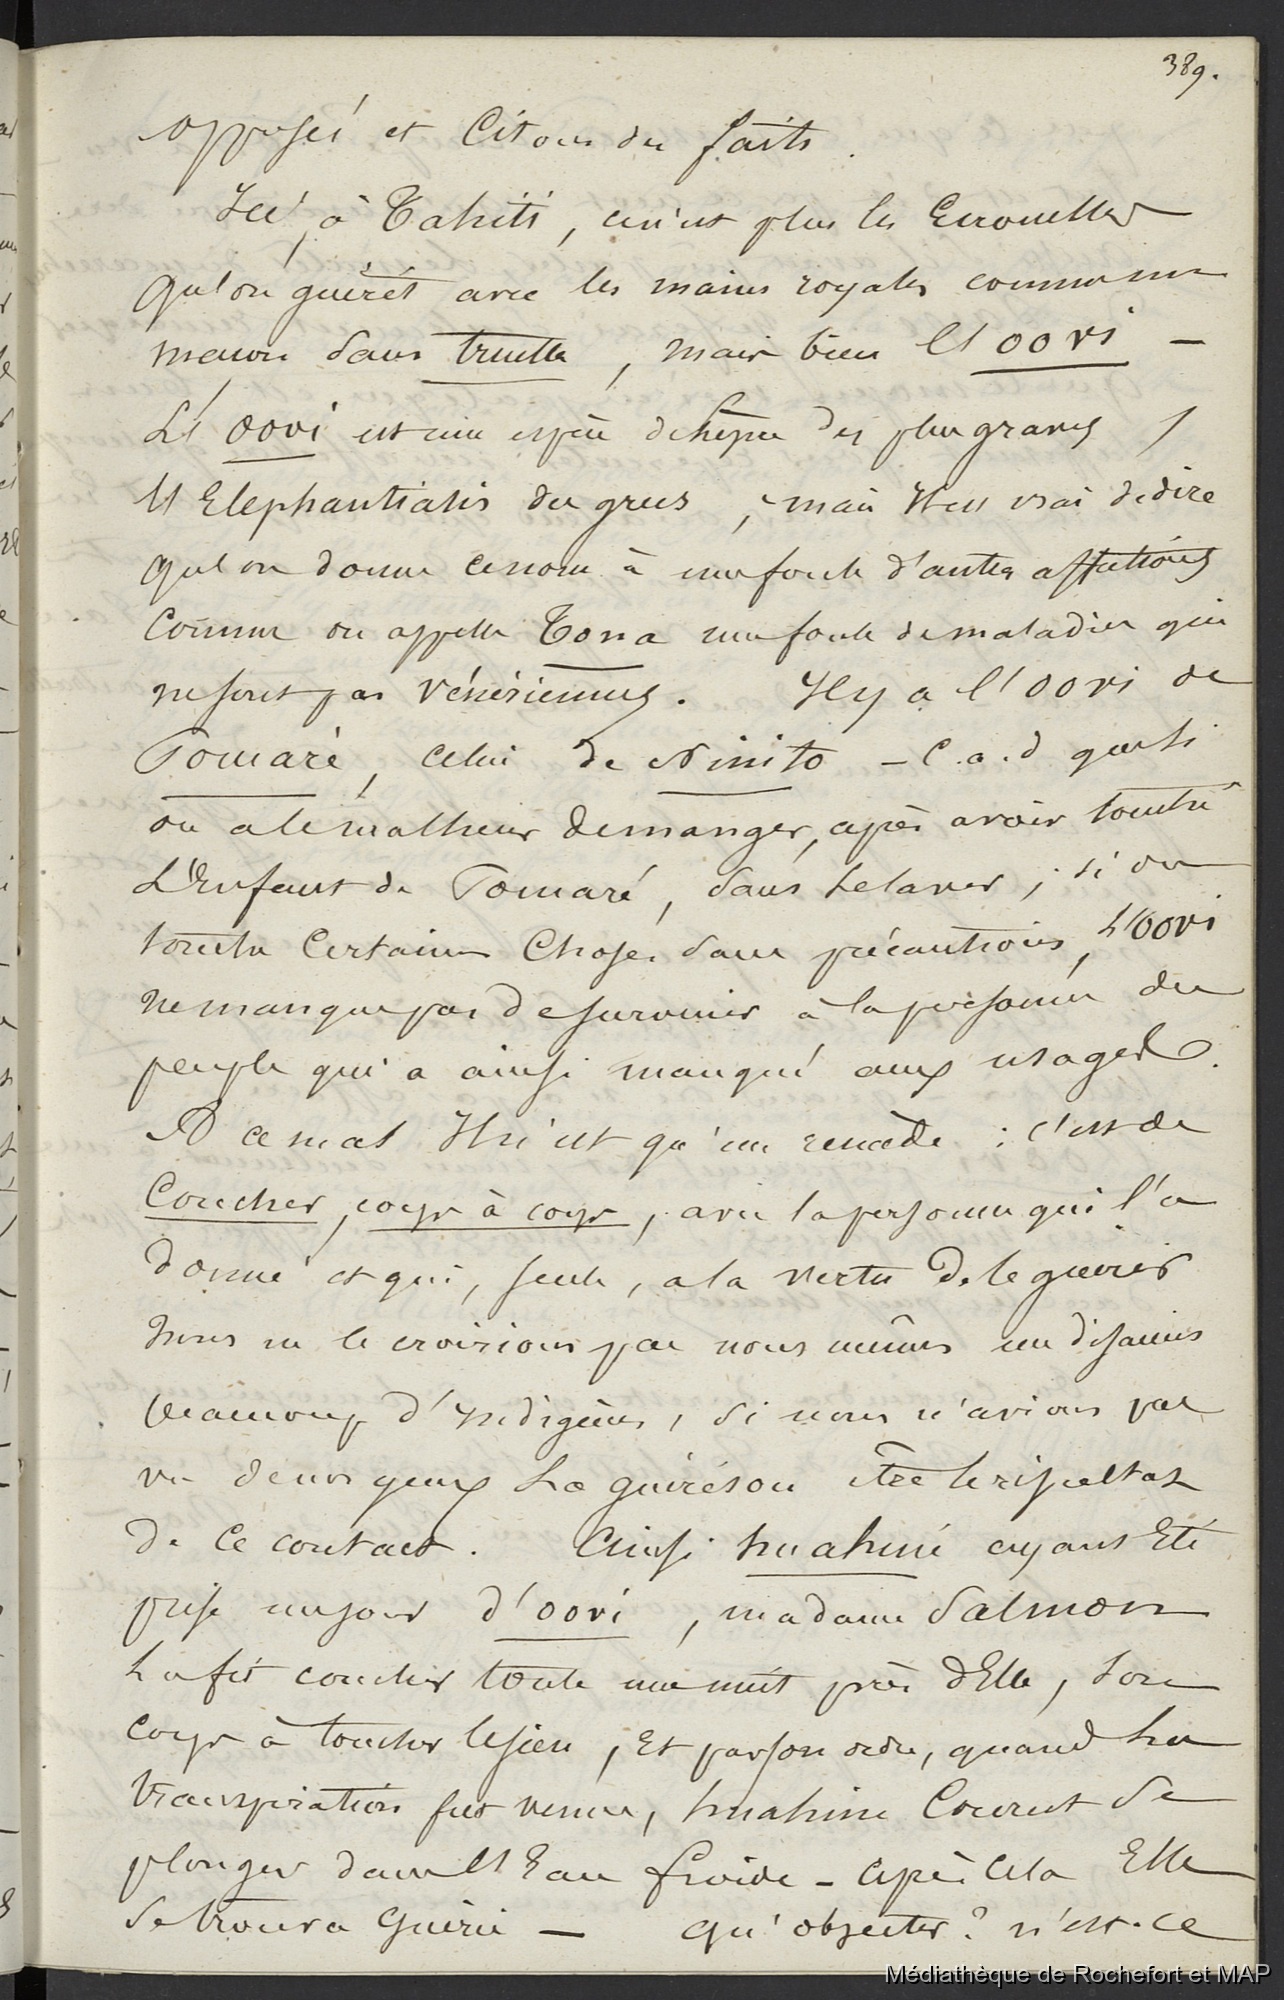 389.
opposés et Citons des faits.
Ici, à Tahiti, ce n'est plus les Ecrouelles
qu'on guérit avec les mains royales comme une
maçon sans truelle, mais bien l'oovi —
L'oovi est une espèce de lèpre des plus graves,
l'Elephantiasis des grecs, mais Il est vrai de dire
qu'on donne ce nom à une foule d'autres affections
Comme on appelle Tona une foule de maladies qui
ne sont pas Vénériennes. Il y a l'oovi de
Pomaré, celui de Ninito — C.a.d que si
on a le malheur de manger, après avoir touché
L'Enfant de Pomaré, sans se laver; si on
touche Certaines Choses sans précautions, L'oovi
ne manque pas de survenir à la personne du
peuple qui a ainsi manqué aux usages.
A ce mal Il n'est qu'un remède : c'est de
Coucher, corps à corps, avec la personne qui l'a
donné et qui, seule, a la vertu de le guérir
Nous ne le croirions pas nous mêmes en disant
beaucoup d'Indigènes, Si nous n'avions pas
vu de nos yeux La guérison être le résultat
de ce contact. Ainsi huahiné ayant Eté
prise un jour d'oovi, madame Salmon
La fit coucher toute une nuit près d'Elle, Son
corps à toucher le sien, Et par son ordre, quand La
transpiration fut venue, huahine Courut Se
plonger dans l'Eau froide — après Cela Elle
Se trouva Guérie — qu'objecter? n'est-ce
Médiathèque de Rochefort et MAP